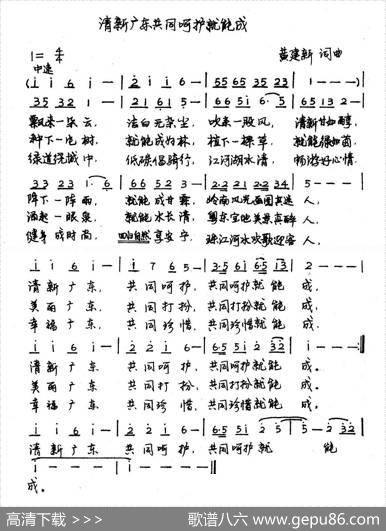 清新广东共同呵护就能成
1= 4/4
黄建新 词曲
中速
(i i 6 i - | 2 i i 6 - | 55 65 35 23 | 1 - - - )
35 32 1 - | 21 61 5 - | 66 5i 6· 5 | 65 13 2 - |
飘来一朵云, 洁白无杂尘, 吹来一股风, 清新甘如醇,
种下一片树, 就能成为林, 植下一棵草, 就能绿如茵,
绿道浣溪中, 低碳倡骑行, 江河湖水清, 畅游好心情,
阵下一阵雨, 就能成甘霖, 岭南风光画图其迷人,
涌起一眼泉, 就能水长清, 粤东宝地美景真醉人,
健身成时尚, 回归自然享安宁, 珠江河水欢歌迎客人,
i i 6 i - | i 7 6 5 - | 3·5 6i 65 13 | 2 - - - |
清新广东, 共同呵护, 共同呵护就能成。
美丽广东, 共同打扮, 共同打扮就能成。
幸福广东, 共同珍惜, 共同珍惜就能成。
i i 6 i - | 2 2 i 6 - |
清新广东 共同呵护, 共同呵护就能成。
美丽广东 共同打扮, 共同打扮就能成。
幸福广东 共同珍惜, 共同珍惜就能成。
i i 6 i - | 2 2 i 6 - |
清新广东 共同呵护, 共同呵护就能
i - - - | i - - - | i - - - |
成。
高清下载 >>>
歌谱八六 www.gepu86.com